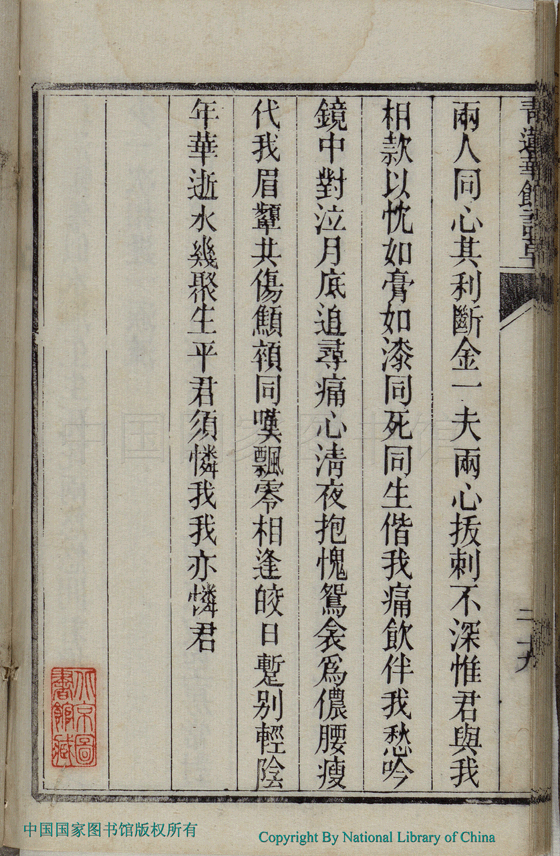 青蓮華館詩草
兩人同心其利斷金一夫兩心拔刺不深惟君與我
相款以忱如膏如漆同死同生偕我痛飲伴我愁吟
鏡中對泣月底追尋痛心淸夜抱愧鴛衾爲儂腰瘦
代我眉顰共傷顦顇同嘆飄零相逢皎日蹔別輕陰
年華逝水幾聚生平君須憐我我亦憐君
二十九
北京圖書館藏
中国国家图书馆版权所有
Copyright By National Library of China